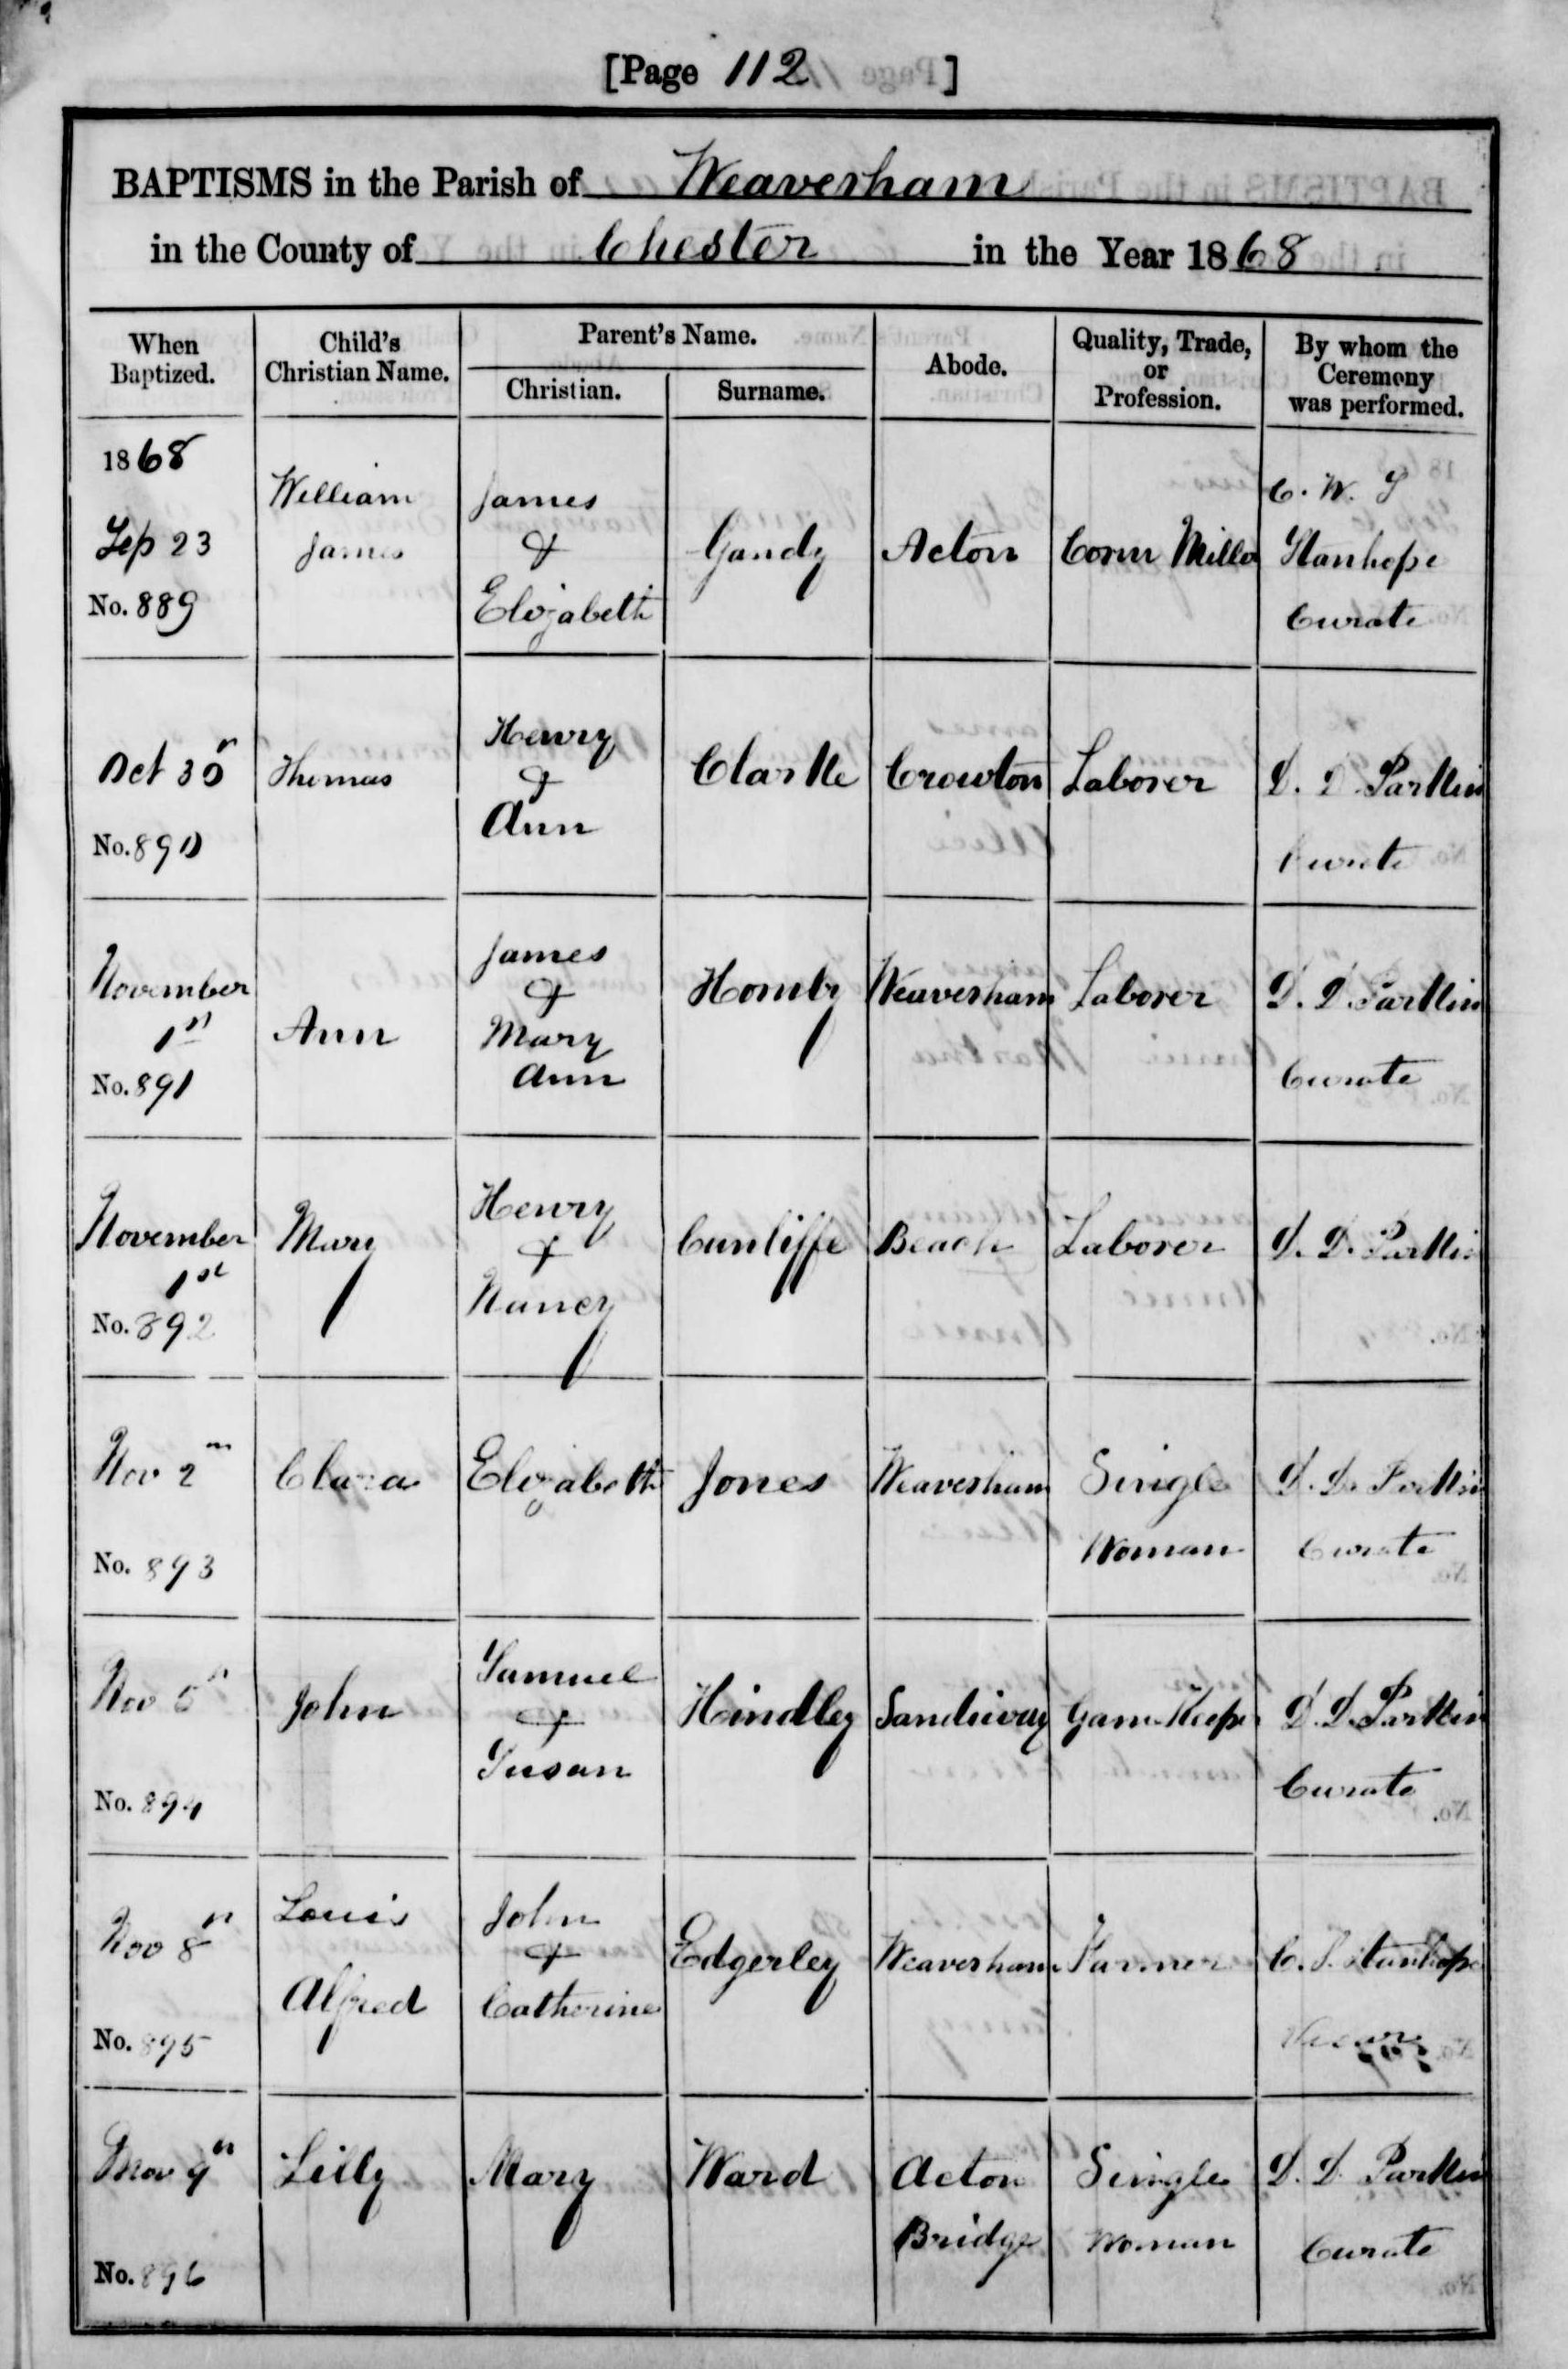 [Page 112]
BAPTISMS in the Parish of Weaverham
in the County of Chester in the Year 1868
When Baptized.
Child's Christian Name.
Parent's Name.
Christian.
Surname.
Abode.
Quality, Trade, or Profession.
By whom the Ceremony was performed.
1868
Sep 23
No. 889
William
James
James
&
Elizabeth
Gandy
Acton
Corn Miller
C. W. S
Stanhope
Curate
Oct 30
No. 890
Thomas
Henry
&
Ann
Clarke
Crowton
Laborer
D. D. Parkin
Curate
November
1st
No. 891
Ann
James
&
Mary
Ann
Hornby
Weaverham
Laborer
D. D. Parkin
Curate
November
1st
No. 892
Mary
Henry
&
Nancy
Cunliffe
Beach
Laborer
D. D. Parkin
Nov 2
No. 893
Clara
Elizabeth
Jones
Weaverham
Single
Woman
D. D. Parkin
Curate
Nov 5
No. 894
John
Samuel
&
Susan
Hindley
Sandiway
Game Keeper
D. D. Parkin
Curate
Nov 8
No. 895
Louis
Alfred
John
&
Catherine
Edgerley
Weaverham
Farmer
C. S. Stanhope
Nov 9
No. 896
Lilly
Mary
Ward
Acton
Bridge
Single
Woman
D. D. Parkin
Curate